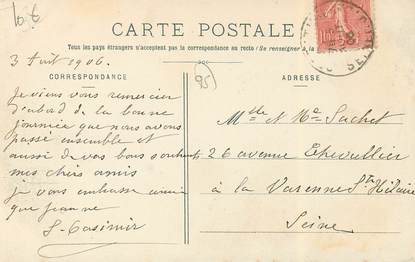 10 €
CARTE POSTALE
Tous les pays étrangers n'acceptent pas la correspondance au recto (Se renseigner
3 Août 1906.
CORRESPONDANCE
95
ADRESSE
Je viens vous remercier
d'abord de la bonne
journée que nous avons
passé ensemble et
aussi de vos bons
mes chers amis
je vous embrasse
que Jeanne
S. Casimir
Mlle et Me Sachet
26 avenue
à la Varenne St Hilaire
Seine